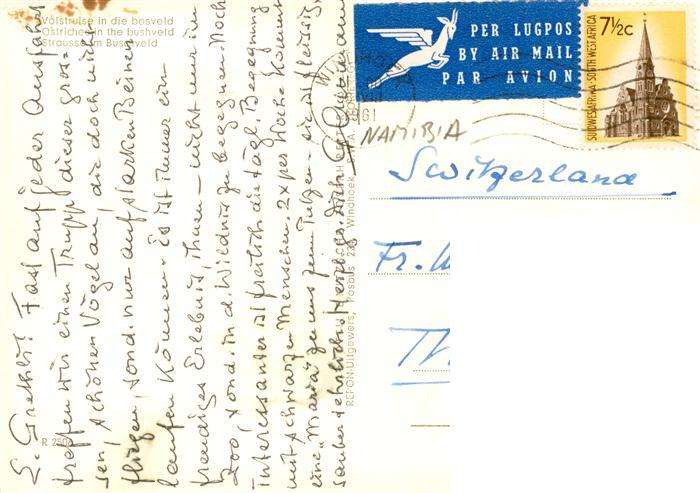 Volstruise in die bosveld
Ostriches in the bushveld
Strausse im Buschveld
L. Grethli! Fast auf jeder Ausfahrt
treffen wir einen Trupp dieser gros-
sen, schönen Vögel an, die doch nicht
fliegen, sond. nur auf starken Beinen
laufen können. es ist immer ein
freudiges Erlebnis, ihnen - nicht nur im
Zoo, sond. in d. Wildnis zu begegnen. Noch
interessanter ist freilich die tägl. Begegnung
mit schwarzen Menschen. 2x per Woche kommt
eine Maria zu uns zum Putzen - sie ist fleissig,
sauber + ehrlich. Herzlgr. dich
R 2506
REFON-Uitgewers, Posbus Windhoek
PER LUGPOS
BY AIR MAIL
PAR AVION
7½c
SUIDWES-AFRIKA · SOUTH WEST AFRICA
WINDHOEK
1961
NAMIBIA
Switzerland
Fr.